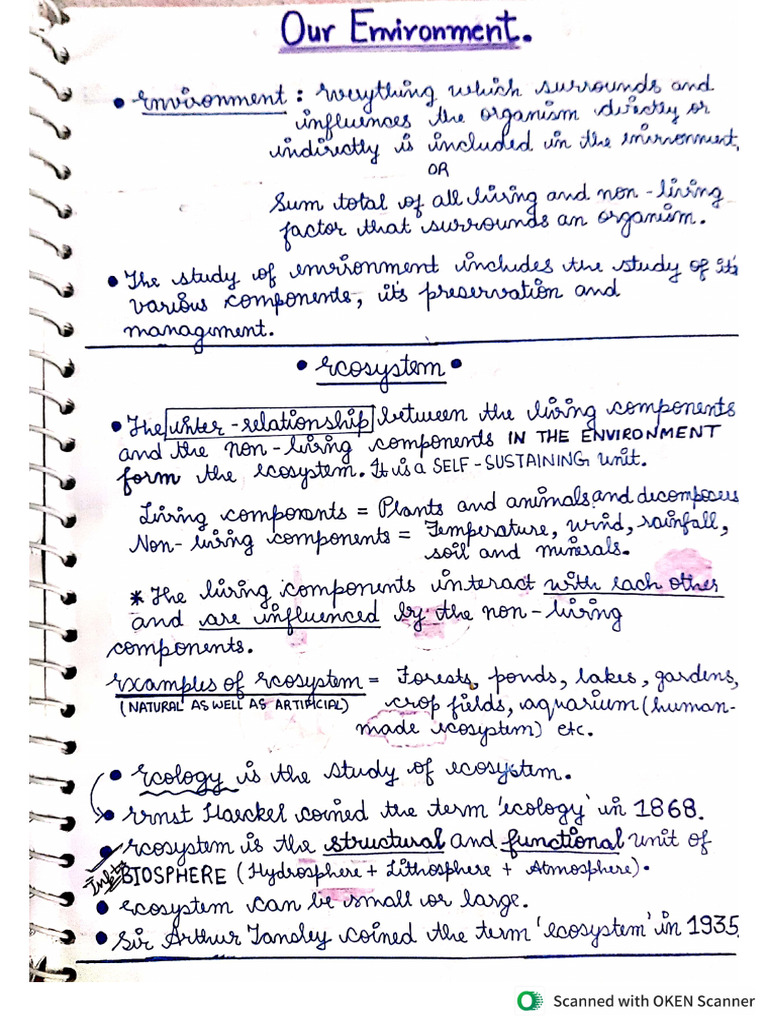 Our Environment.
• Environment : Everything which surrounds and
influences the organism directly or
indirectly is included in the environment.
OR
Sum total of all living and non-living
factor that surrounds an organism.
• The study of environment includes the study of its
various components, its preservation and
management.
• Ecosystem •
• The inter-relationship between the living components
and the non-living components IN THE ENVIRONMENT
form the ecosystem. It is a SELF-SUSTAINING unit.
Living components = Plants and animals and decomposers
Non-living components = Temperature, wind, rainfall,
soil and minerals.
* The living components interact with each other
and are influenced by the non-living
components.
Examples of Ecosystem = Forests, ponds, lakes, gardens,
(NATURAL AS WELL AS ARTIFICIAL) crop fields, aquarium (human-
made ecosystem) etc.
• Ecology is the study of ecosystem.
• Ernst Haeckel coined the term 'ecology' in 1868.
• Ecosystem is the structural and functional unit of
BIOSPHERE (Hydrosphere + Lithosphere + Atmosphere).
• Ecosystem can be small or large.
• Sir Arthur Tansley coined the term 'ecosystem' in 1935.
Scanned with OKEN Scanner